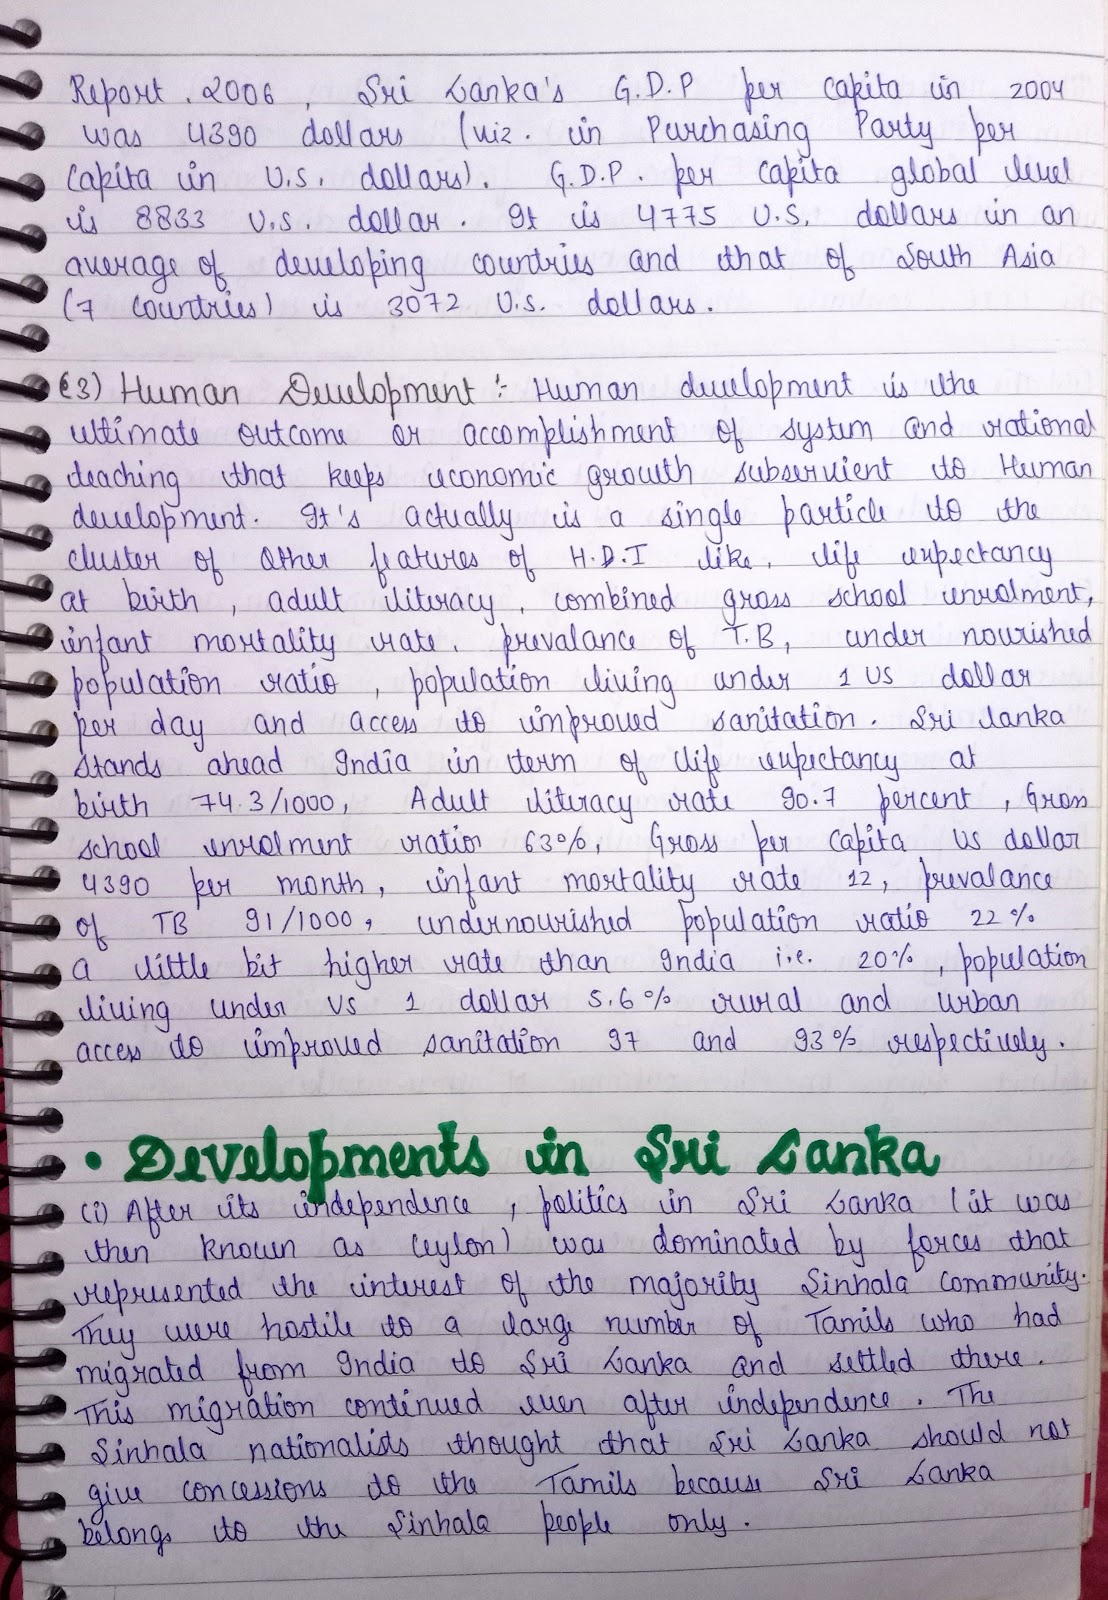 Report . 2006 , Sri Lanka's G.D.P per capita in 2004
was 4390 dollars (viz. in Purchasing Party per
Capita in U.S. dollars). G.D.P. per capita global level
is 8833 U.S. dollar. It is 4775 U.S. dollars in an
average of developing countries and that of South Asia
(7 countries) is 3072 U.S. dollars.
(3) Human Development :- Human development is the
ultimate outcome or accomplishment of system and rational
teaching that keeps economic growth subservient to Human
development. It's actually is a single particle to the
cluster of other features of H.D.I like, life expectancy
at birth, adult literacy, combined gross school enrolment,
infant mortality rate, prevalance of T.B, under nourished
population ratio, population living under 1 US dollar
per day and access to improved sanitation. Sri lanka
stands ahead India in term of life expectancy at
birth 74.3/1000, Adult literacy rate 90.7 percent, Gross
school enrolment ratior 63%, Gross per capita US dollar
4390 per month, infant mortality rate 12, prevalance
of TB 91/1000, undernourished population ratio 22%
a little bit higher rate than India i.e. 20%, population
living under US 1 dollar 5.6% rural and urban
access to improved sanitation 97 and 93% respectively.
• Developments in Sri Lanka
(i) After its independence, politics in Sri Lanka (it was
then known as Ceylon) was dominated by forces that
represented the interest of the majority Sinhala community.
They were hostile to a large number of Tamils who had
migrated from India to Sri Lanka and settled there.
This migration continued even after independence. The
Sinhala nationalists thought that Sri Lanka should not
give concessions to the Tamils because Sri Lanka
belongs to the Sinhala people only.